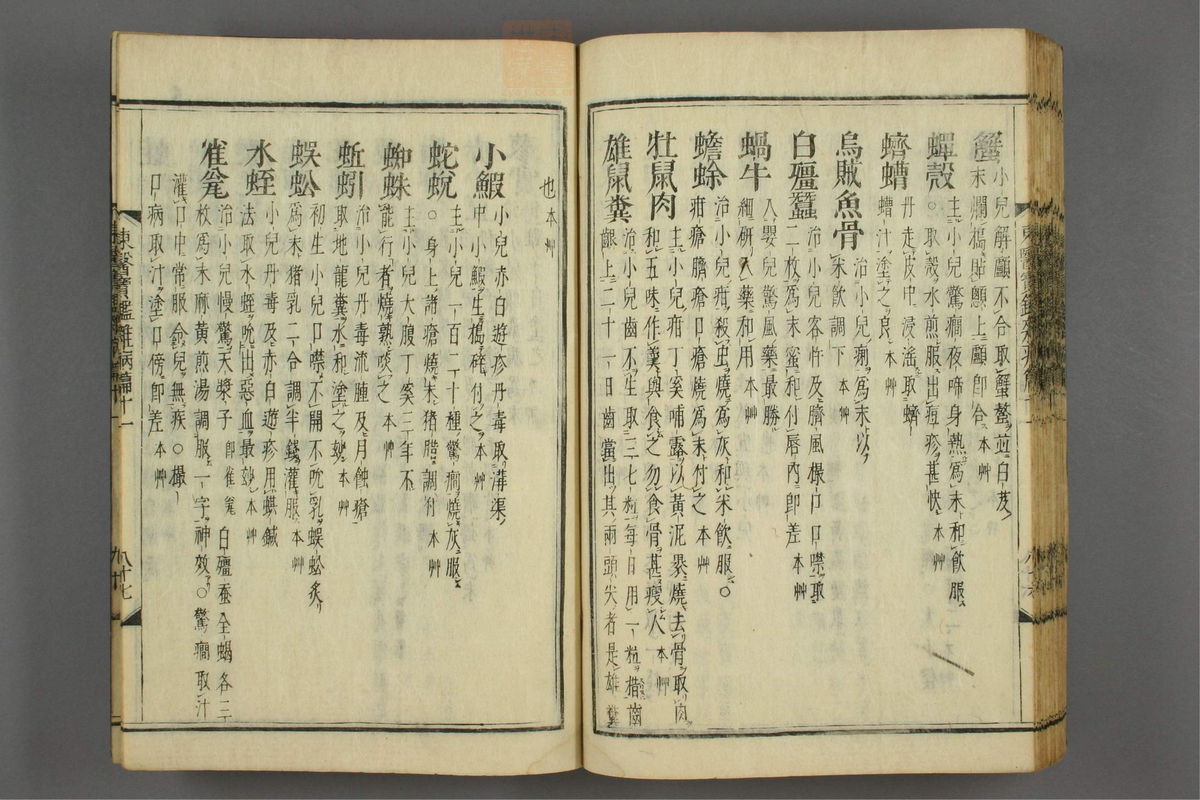 蟹 小兒解顱不合取蟹螯並白芨
末爛搗貼顱上顱卽合 本艸
蟬殼 主小兒驚癎夜啼身熱爲末和飮服
○取殼水煎服出痘疹甚快 本艸
蠐螬 丹走皮中浸淫取蠐
螬汁塗之良 本艸
烏賊魚骨 治小兒痢爲末以
米飮調下 本艸
白殭蠶 治小兒客忤及臍風撮口口噤取
二枚爲末蜜和付唇內卽差 本艸
蝸牛 入嬰兒驚風藥最勝
細硏入藥和用 本艸
蟾蜍 治小兒疳殺虫燒爲灰和米飮服○
疳瘡臍瘡口瘡燒爲末付之 本艸
牡鼠肉 主小兒疳丁奚哺露以黃泥裹燒去骨取肉
和五味作羹與食之勿食骨甚瘦人 本艸
雄鼠糞 治小兒齒不生取三七粒每日用一粒揩齒
齦上二十一日齒當出其兩頭尖者是雄糞
也 本艸
小鰕 小兒赤白遊疹丹毒取溝渠
中小鰕生搗碎付之 本艸
蛇蛻 主小兒一百二十種驚癎燒灰服
○身上諸瘡燒末猪脂調付 本艸
蜘蛛 主小兒大腹丁奚三年不
能行者燒熟啖之 本艸
蚯蚓 治小兒丹毒流腫及月蝕瘡
取地龍糞水和塗之妙 本艸
蜈蚣 初生小兒口噤不開不吮乳蜈蚣炙
爲末猪乳二合調半錢灌服 本艸
水蛭 小兒丹毒及赤白遊疹用蜞鍼
法取水蛭吮出惡血最妙 本艸
雀瓮 治小兒慢驚天漿子 卽雀瓮 白殭蚕全蝎各三
枚爲末麻黃煎湯調服一字神效○驚癎取汁
灌口中常服令兒無疾○撮
口病取汁塗口傍卽差 本艸
東醫寶鑑雜病篇十一
八十七